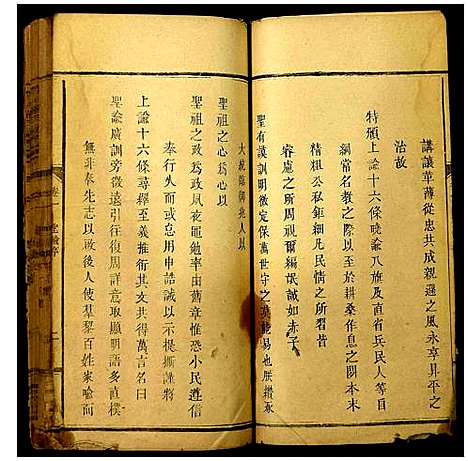 講讓革薄從忠共成親遜之風永享昇平之
治故
特頒上諭十六條曉諭八旗及直省兵民人等自
綱常名教之際以至於耕桑作息之間本末
精粗公私鉅細凡民情之所習者
睿慮之所周視爾編氓誠如赤子
聖有謨訓明徵定保萬世守之莫能易也朕纘承
大統臨御兆人以
聖祖之心為心以
聖祖之政為政夙夜黽勉率由舊章惟恐小民遵信
奉行久而或怠用申誥誡以示提撕謹將
上諭十六條尋繹至義推衍其文共得萬言名曰
聖諭廣訓旁徵遠引往復周詳意取顯明語多直樸
無非奉先志以啟後人使羣黎百姓家喻而